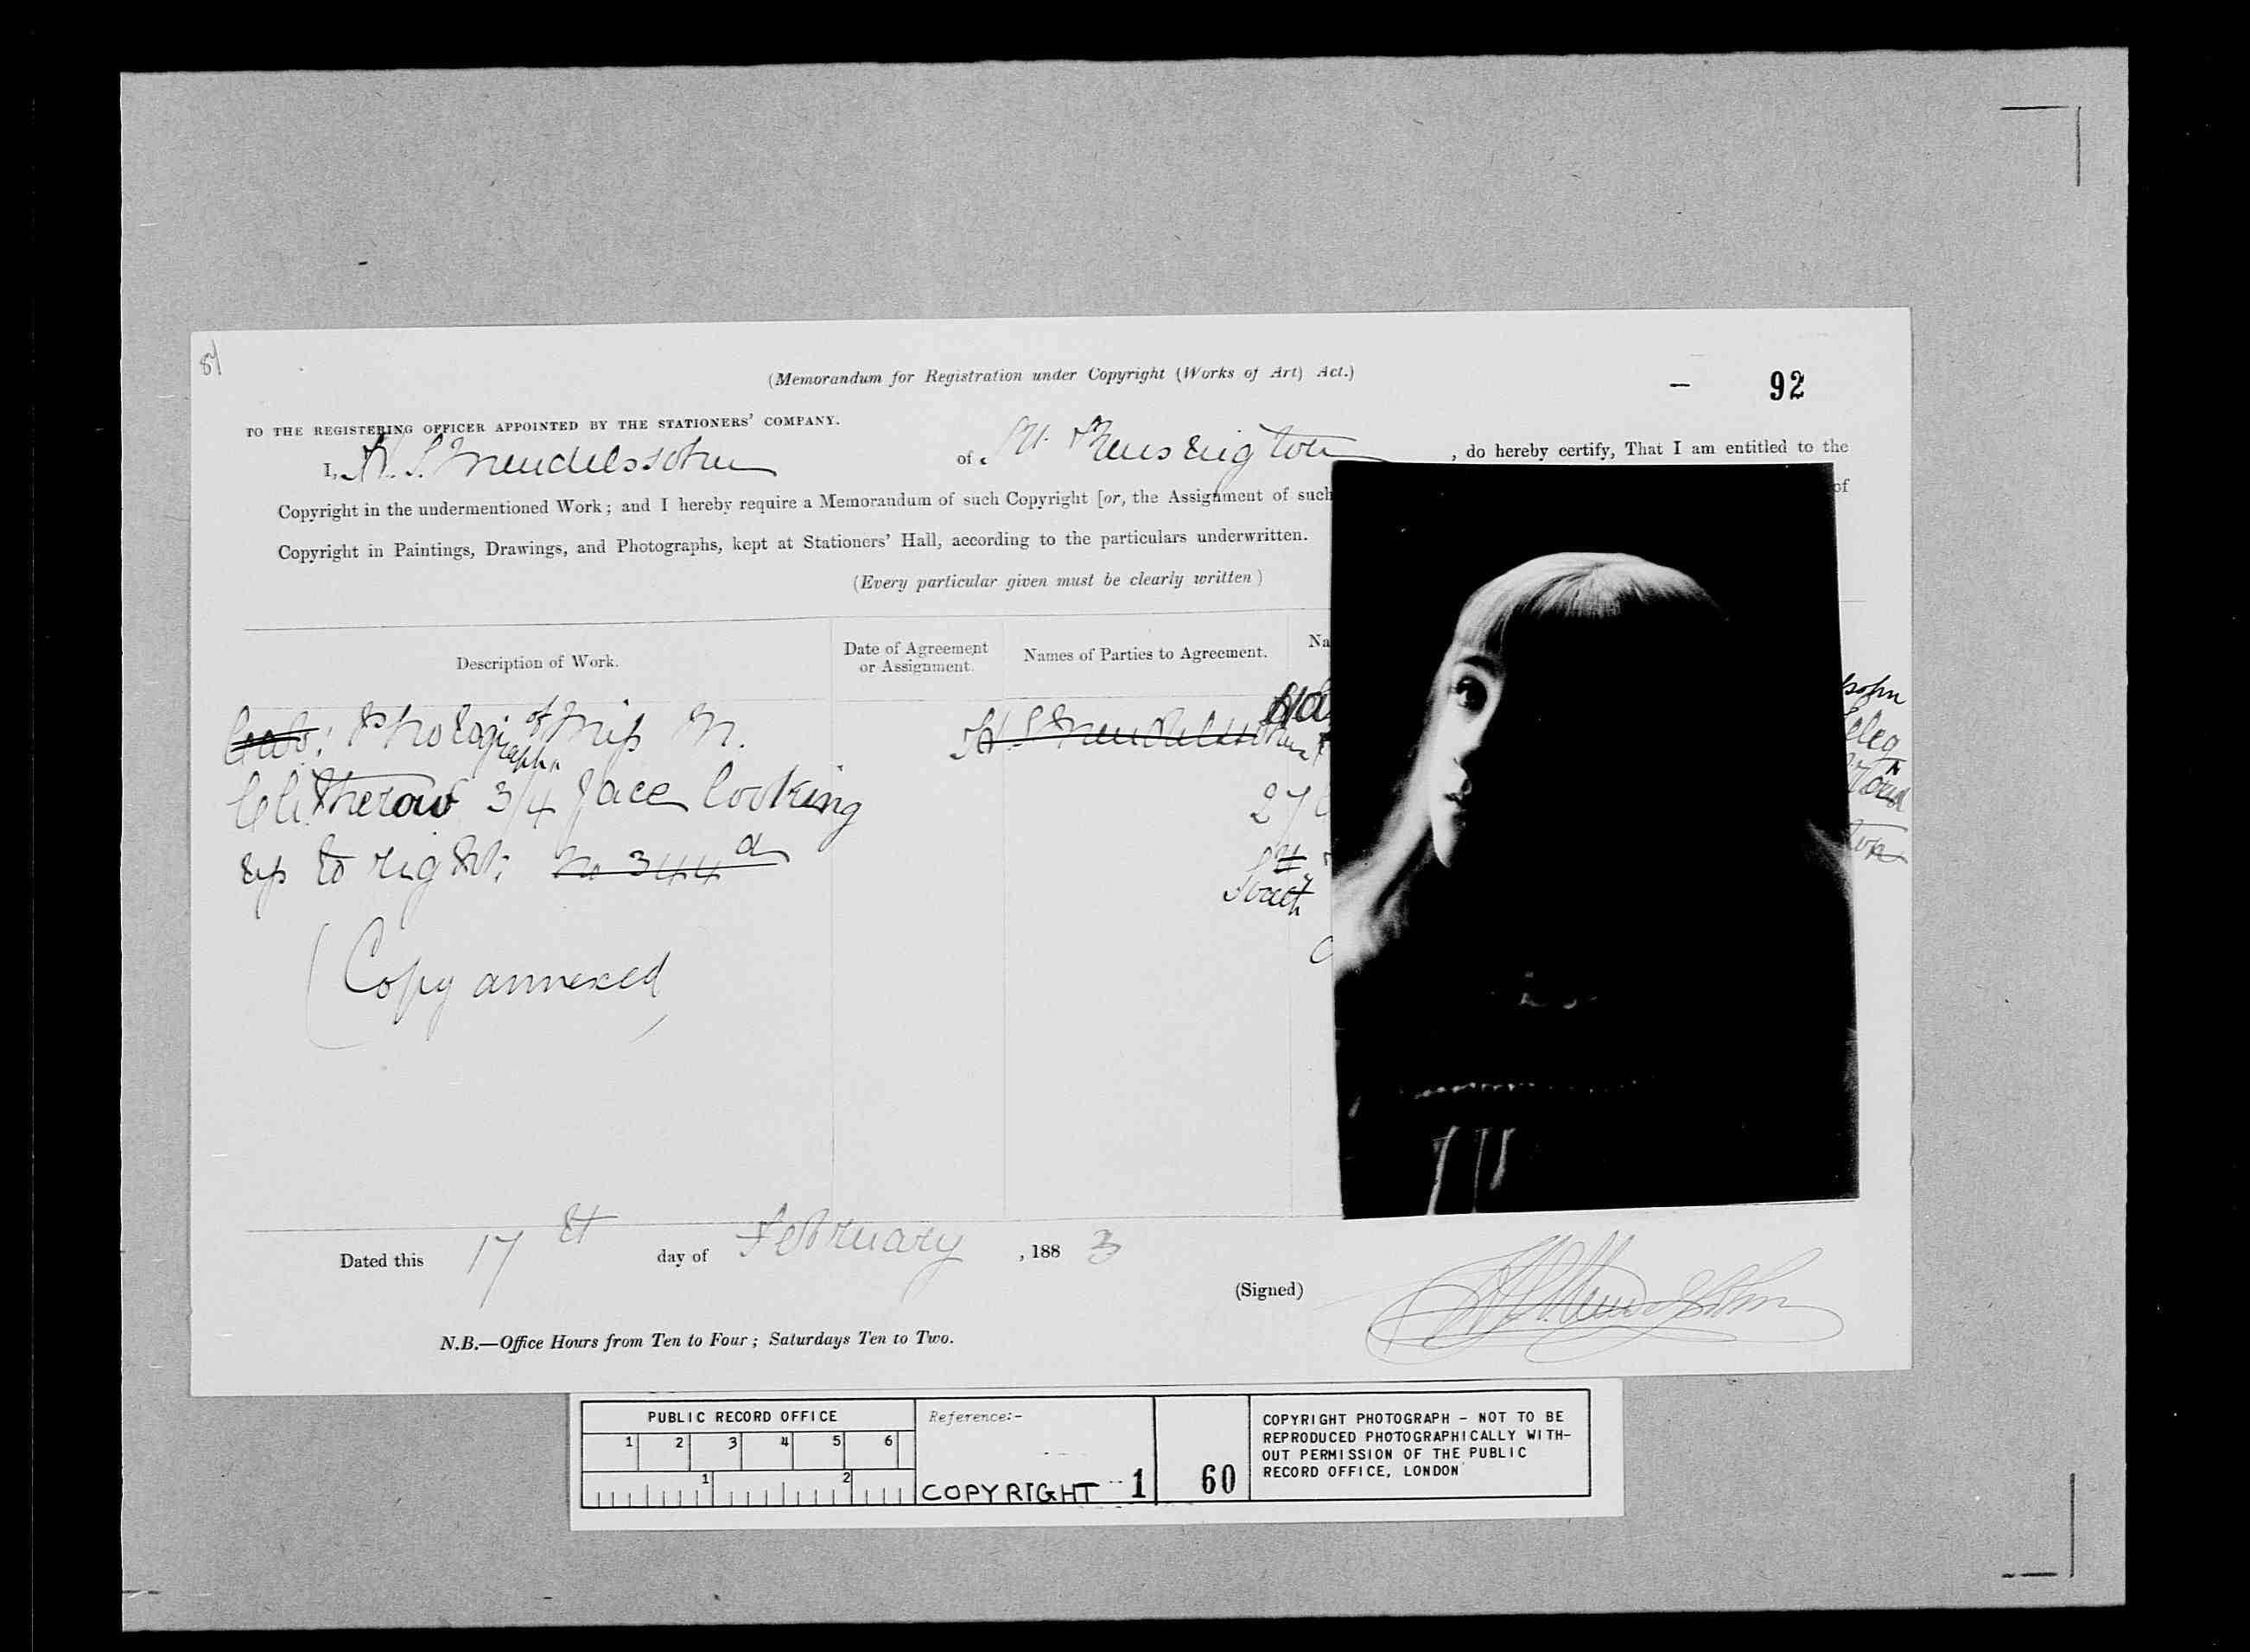 84
(Memorandum for Registration under Copyright (Works of Art) Act.)
— 92
TO THE REGISTERING OFFICER APPOINTED BY THE STATIONERS' COMPANY.
I, H. S. Mendelssohn of S. Kensington, do hereby certify, That I am entitled to the
Copyright in the undermentioned Work; and I hereby require a Memorandum of such Copyright [or, the Assignment of such of
Copyright in Paintings, Drawings, and Photographs, kept at Stationers' Hall, according to the particulars underwritten.
(Every particular given must be clearly written)
Description of Work.
Date of Agreement
or Assignment.
Names of Parties to Agreement.
Na
Cab: Photograph of Miss M.
Clitherow 3/4 face looking
up to right; No 344 a
(Copy annexed)
H S Mendelssohn
Ha
27
South
sohn
ton
Dated this 17th day of February, 1883
(Signed) H S Mendelssohn
N.B.—Office Hours from Ten to Four; Saturdays Ten to Two.
PUBLIC RECORD OFFICE
1 2 3 4 5 6
1 2
Reference:-
COPYRIGHT 1
60
COPYRIGHT PHOTOGRAPH - NOT TO BE
REPRODUCED PHOTOGRAPHICALLY WITH-
OUT PERMISSION OF THE PUBLIC
RECORD OFFICE, LONDON